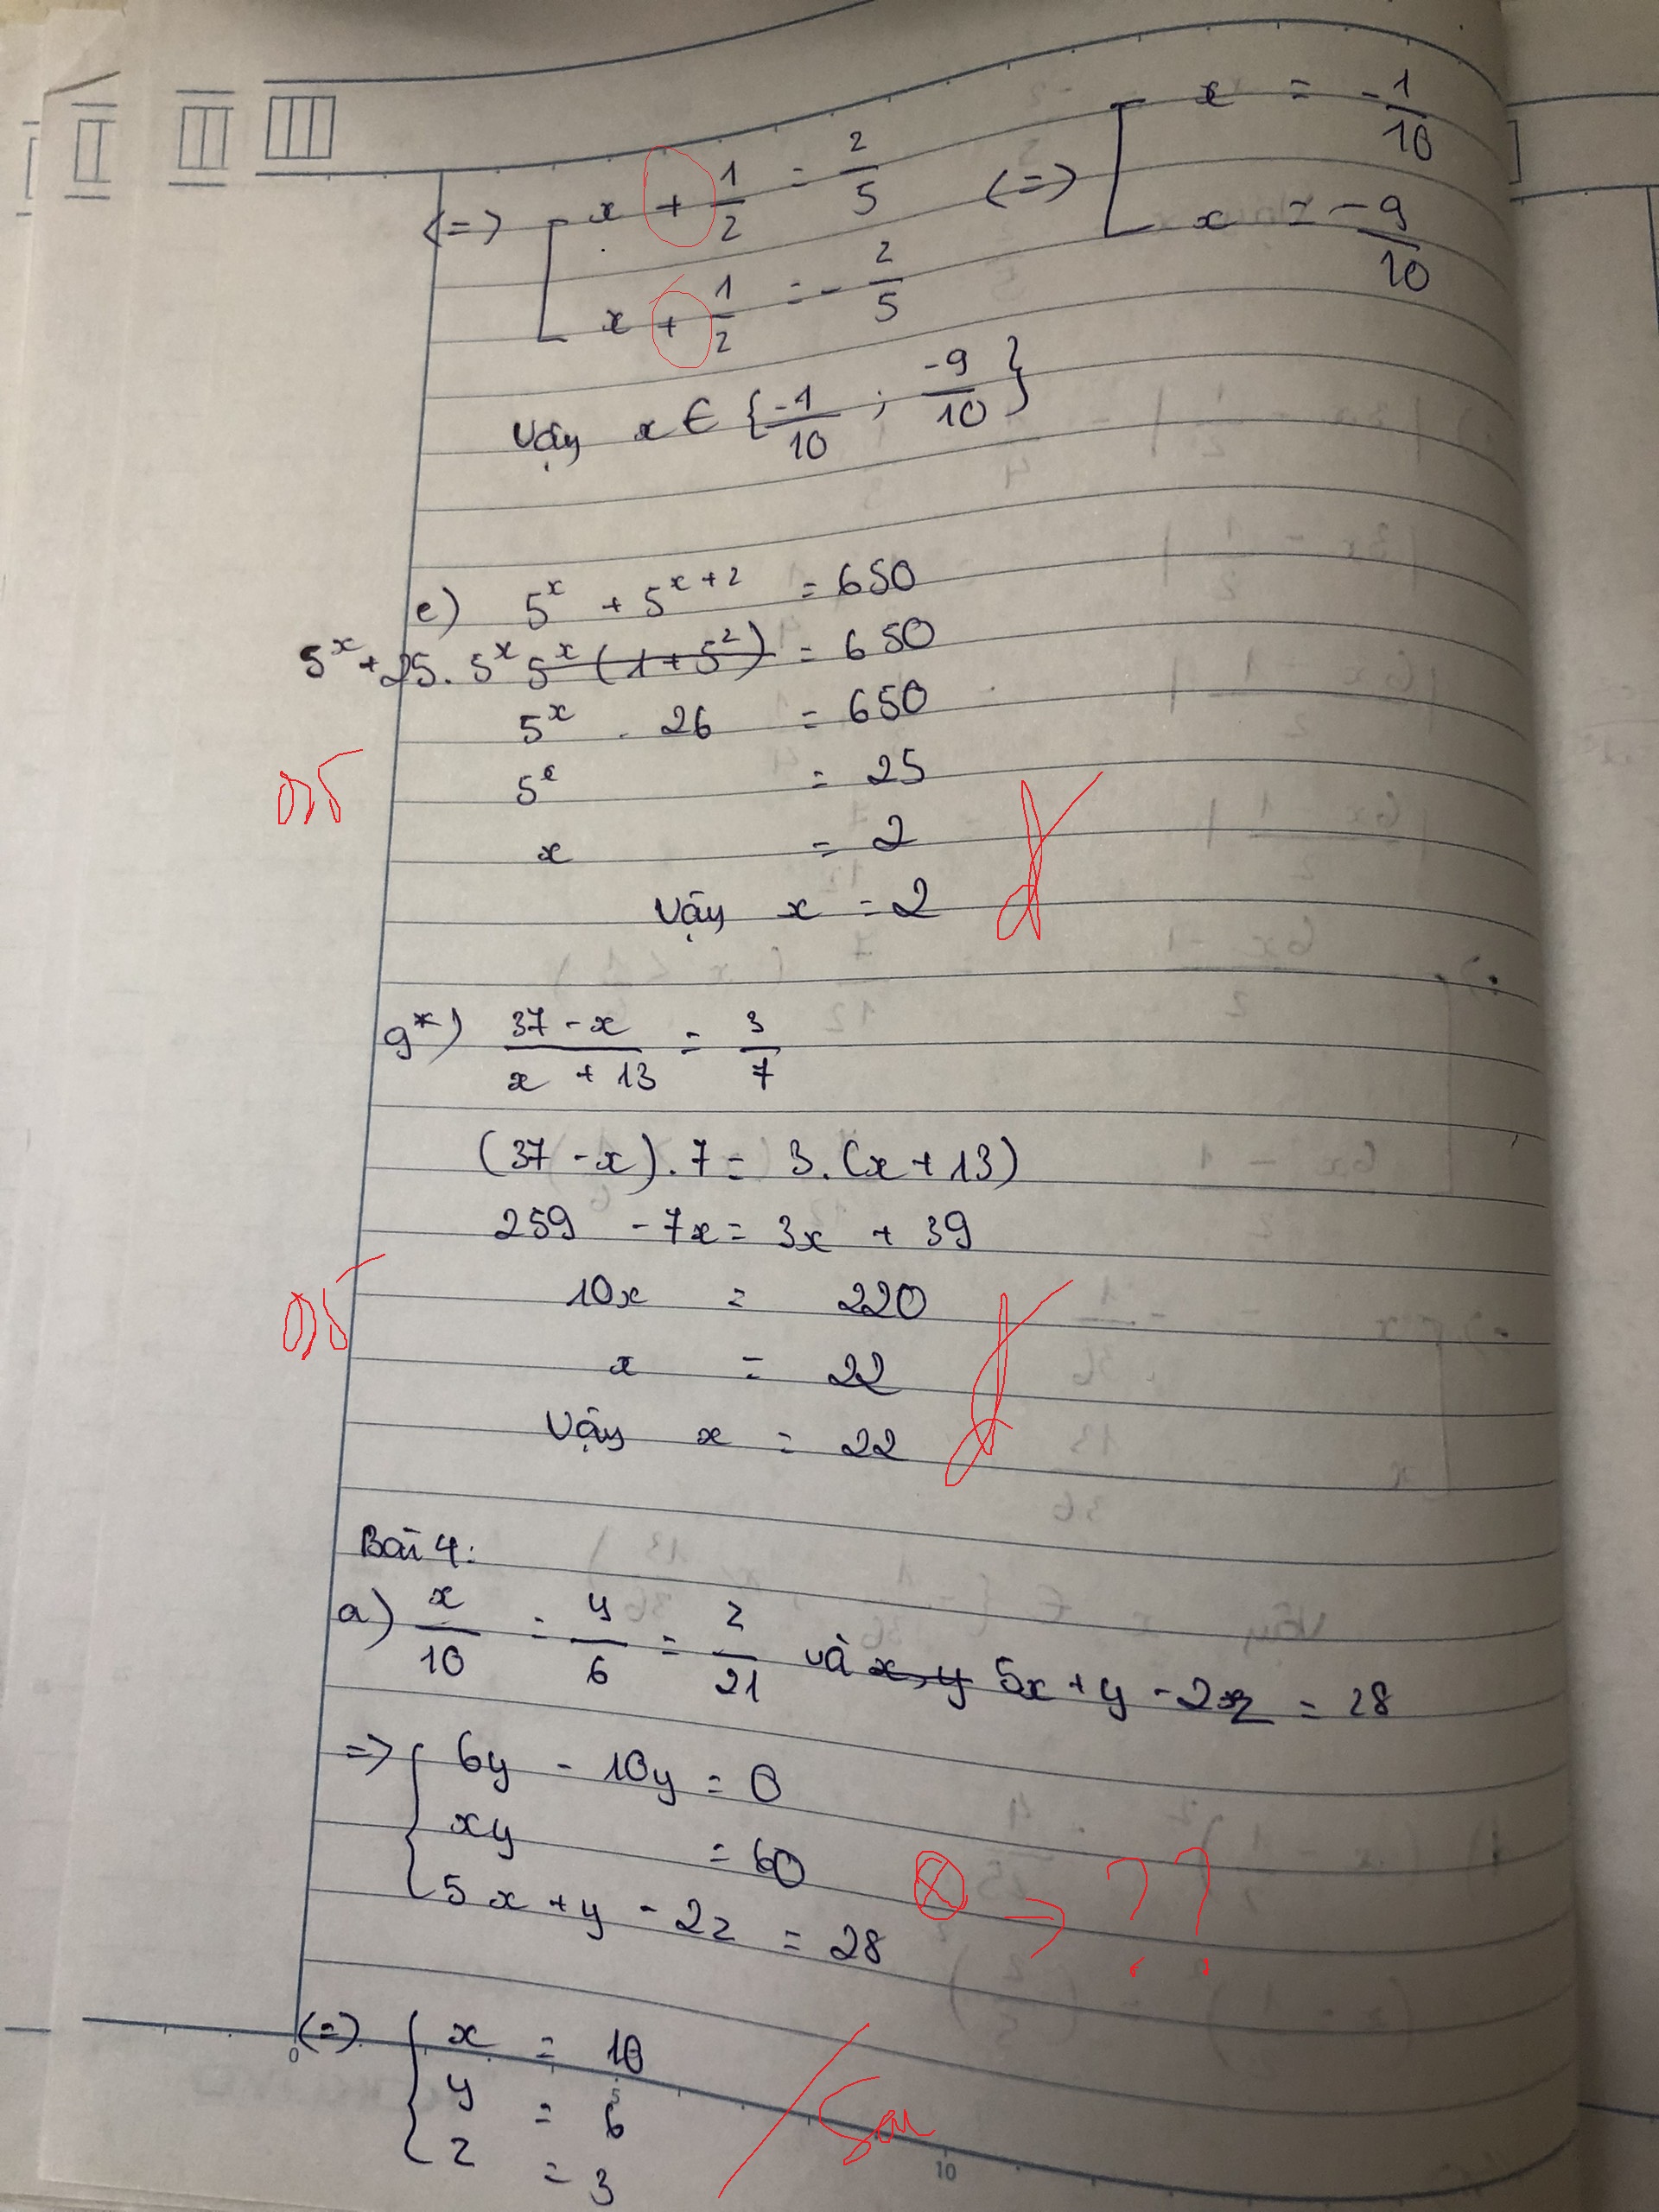 (=) x + 1/2 = 2/5 (=) x = -1/10
x + 1/2 = - 2/5 x = -9/10
Vậy x ∈ {-1/10 ; -9/10}
e) 5^x + 5^(x+2) = 650
5^x + 25. 5^x 5^x (1+5^2) = 650
5^x . 26 = 650
5^x = 25
0,5
x = 2
Vậy x = 2
g*) (37 - x)/(x + 13) = 3/7
(37 - x) . 7 = 3. (x + 13)
259 - 7x = 3x + 39
10x = 220
0,5
x = 22
Vậy x = 22
Bài 4:
a) x/10 = y/6 = z/21 và x, y 5x + y - 2z = 28
=> { 6y - 10y = 0
xy = 60
5x + y - 2z = 28 ⊗ → ??
(=) { x = 10
y = 6
z = 3
Sai
0 5 10